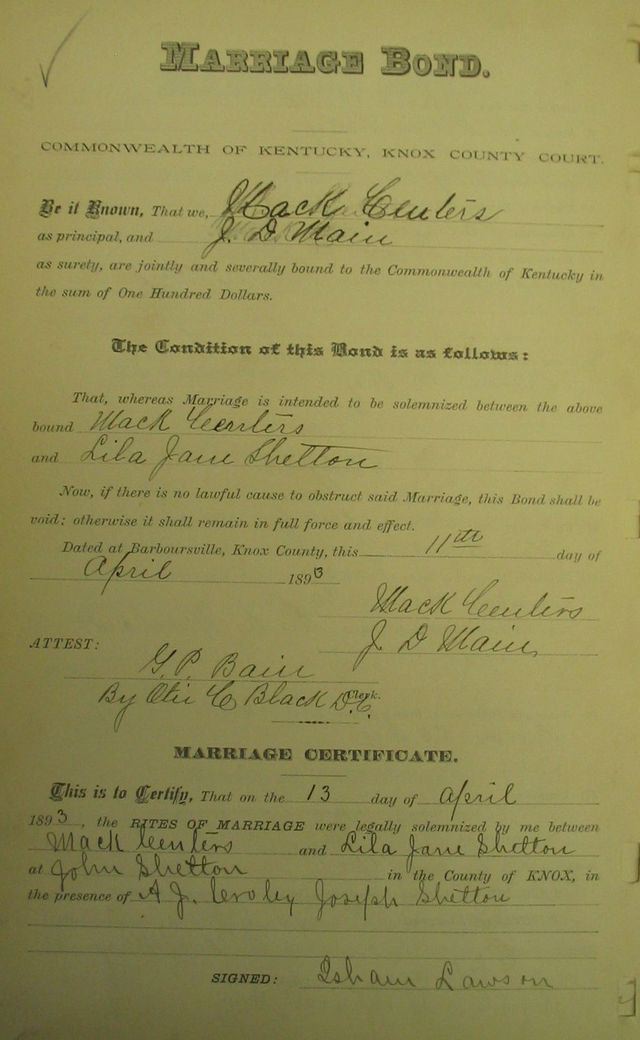 MARRIAGE BOND.
COMMONWEALTH OF KENTUCKY, KNOX COUNTY COURT.
Be it Known, That we, Mack Centers
as principal, and J. D. Main
as surety, are jointly and severally bound to the Commonwealth of Kentucky in
the sum of One Hundred Dollars.
The Condition of this Bond is as follows:
That, whereas Marriage is intended to be solemnized between the above
bound Mack Centers
and Lila Jane Shelton
Now, if there is no lawful cause to obstruct said Marriage, this Bond shall be
void; otherwise it shall remain in full force and effect.
Dated at Barboursville, Knox County, this 11th day of
April 1893
Mack Centers
ATTEST: J. D. Main
G. P. Bain
By Otis C Black D.C. Clerk.
MARRIAGE CERTIFICATE.
This is to Certify, That on the 13 day of April
1893, the RITES OF MARRIAGE were legally solemnized by me between
Mack Centers and Lila Jane Shelton
at John Shelton in the County of KNOX, in
the presence of A. J. Croley Joseph Shelton
SIGNED: Isham Lawson